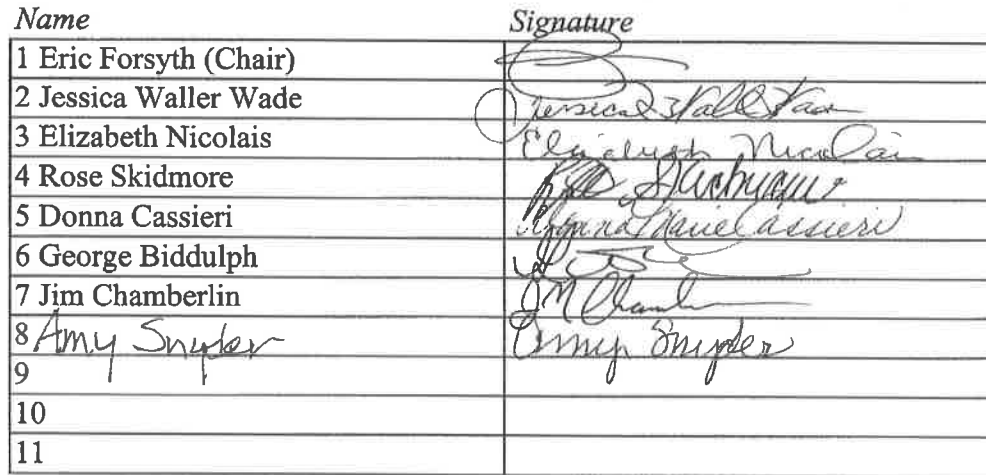 Name Signature
1 Eric Forsyth (Chair)
2 Jessica Waller Wade Jessica
3 Elizabeth Nicolais Elizabeth Nicolais
4 Rose Skidmore
5 Donna Cassieri Donna Marie Cassieri
6 George Biddulph
7 Jim Chamberlin JM Chamberlin
8 Amy Snyder Amy Snyder
9
10
11